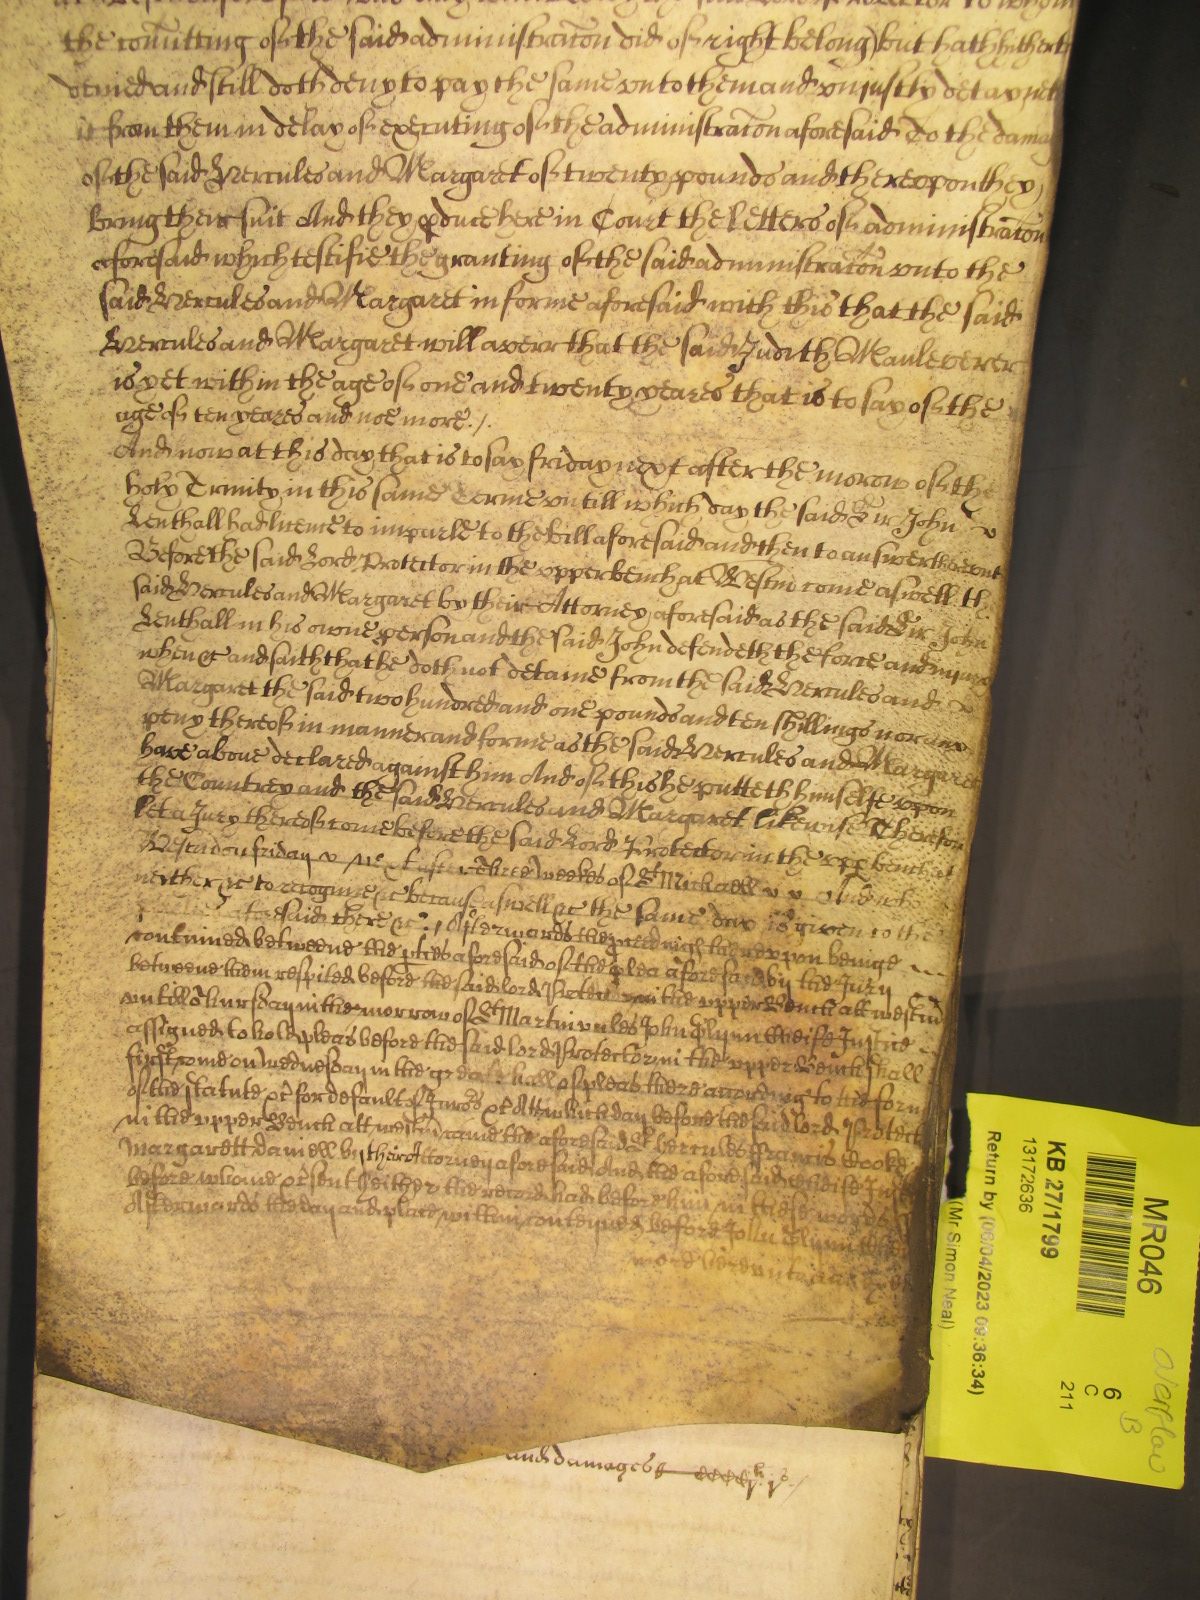 the com̃itting of the said administrac̃on did of right belong) but hath hitherto
denied and still doth deny to pay the same vnto them and vniustly detayneth
it from them in delay of executing of the administrac̃on aforesaid To the damage
of the said Hercules and Margaret of twenty pounds and therevpon they
bring their suit And they pduce here in Court the letters of administrac̃on
aforesaid which testifie the granting of the said administrac̃on vnto the
said Hercules and Margaret in forme aforesaid with this that the said
Hercules and Margaret will averr that the said Judith Mauleverer
is yet within the age of one and twenty yeares that is to say of the
age of ten yeares and noe more./.
And now at this day that is to say friday next after the morow of the
holy Trinity in this same Terme vntill which day the said Sir John
Lenthall had licence to imparle to the bill aforesaid and then to answer therevnto
Before the said Lord Protector in the vpper bench at Westm̃ come aswell the
said Hercules and Margaret by their Attorney aforesaid as the said Sir John
Lenthall in his owne person and the said John defendeth the force and iniury
when &c and saith that he doth not detaine from the said Hercules and
Margaret the said two hundred and one pounds and ten shillings nor any
peny thereof in manner and forme as the said Hercules and Margaret
have above declared against him And of this he putteth himselfe vpon
the Countrey and the said Hercules and Margaret likewise Therefore
let a Jury thereof come before the said Lord Protector in the vpp bench at
Westm̃ on friday next after three weekes of St Michaell And who
neither &c to recognize &c because aswell &c the same day is given to the
aforesaid there &c. Afterwards the therevpon beinge
continued betweene the pties aforesaid of the plea aforesaid by the Jury
betweene them respited before the said lord Protector in the vpper Bench att westm̃
vntill Thursday in the morrow of St Martin vnles John Glynn Cheife Justice
assigned to hold pleas before the said lord Protector in the vpper Bench shall
first come on wednesday in the great hall of pleas there according to the forme
of the statute &c for default of Jurors &c Att which day before the said lord Protector
in the vpper Bench att westm̃ came the aforesaid Hercules ffrancis Cooke
Margarett daniell by their Attorney aforesaid And the aforesaid Cheife Justice
before whome &c sent hether the record had before him in these words
Afterwards the day and place within conteyned before John Glynn
word herevnto
and damages
MR046
KB 27/1799
13172636
Return by (06/04/2023 09:36:34)
(Mr Simon Neal)
6
C
211
Overflow
B